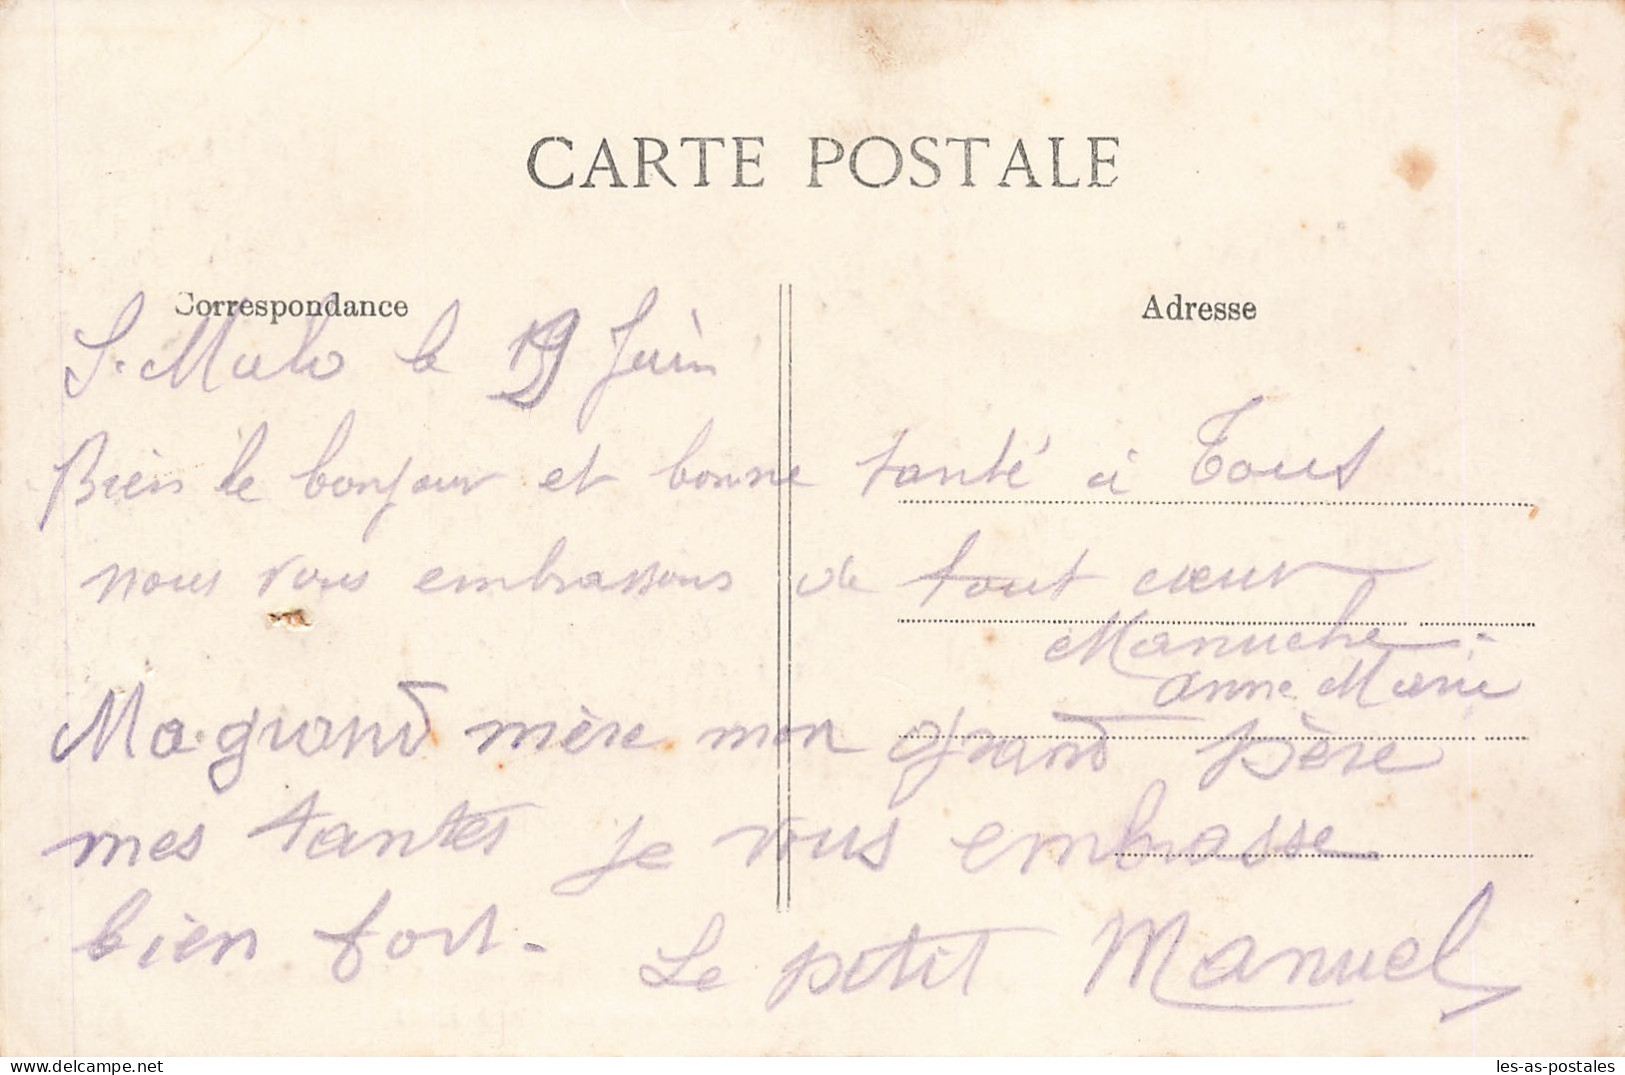 CARTE POSTALE
Correspondance
Adresse
S. Malo le 19 Juin
Bien le bonjour et bonne santé à Tous
nous vous embrassons de tout cœur
Manuche
Anne Marie
Ma grand mère mon grand père
mes tantes je vous embrasse
bien fort.
Le petit Manuel
les-as-postales